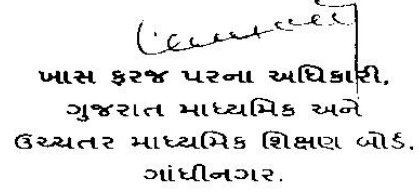 ખાસ ફરજ પરના અધિકારી,
ગુજરાત માધ્યમિક અને
ઉચ્ચતર માધ્યમિક શિક્ષણ બોર્ડ,
ગાંધીનગર.